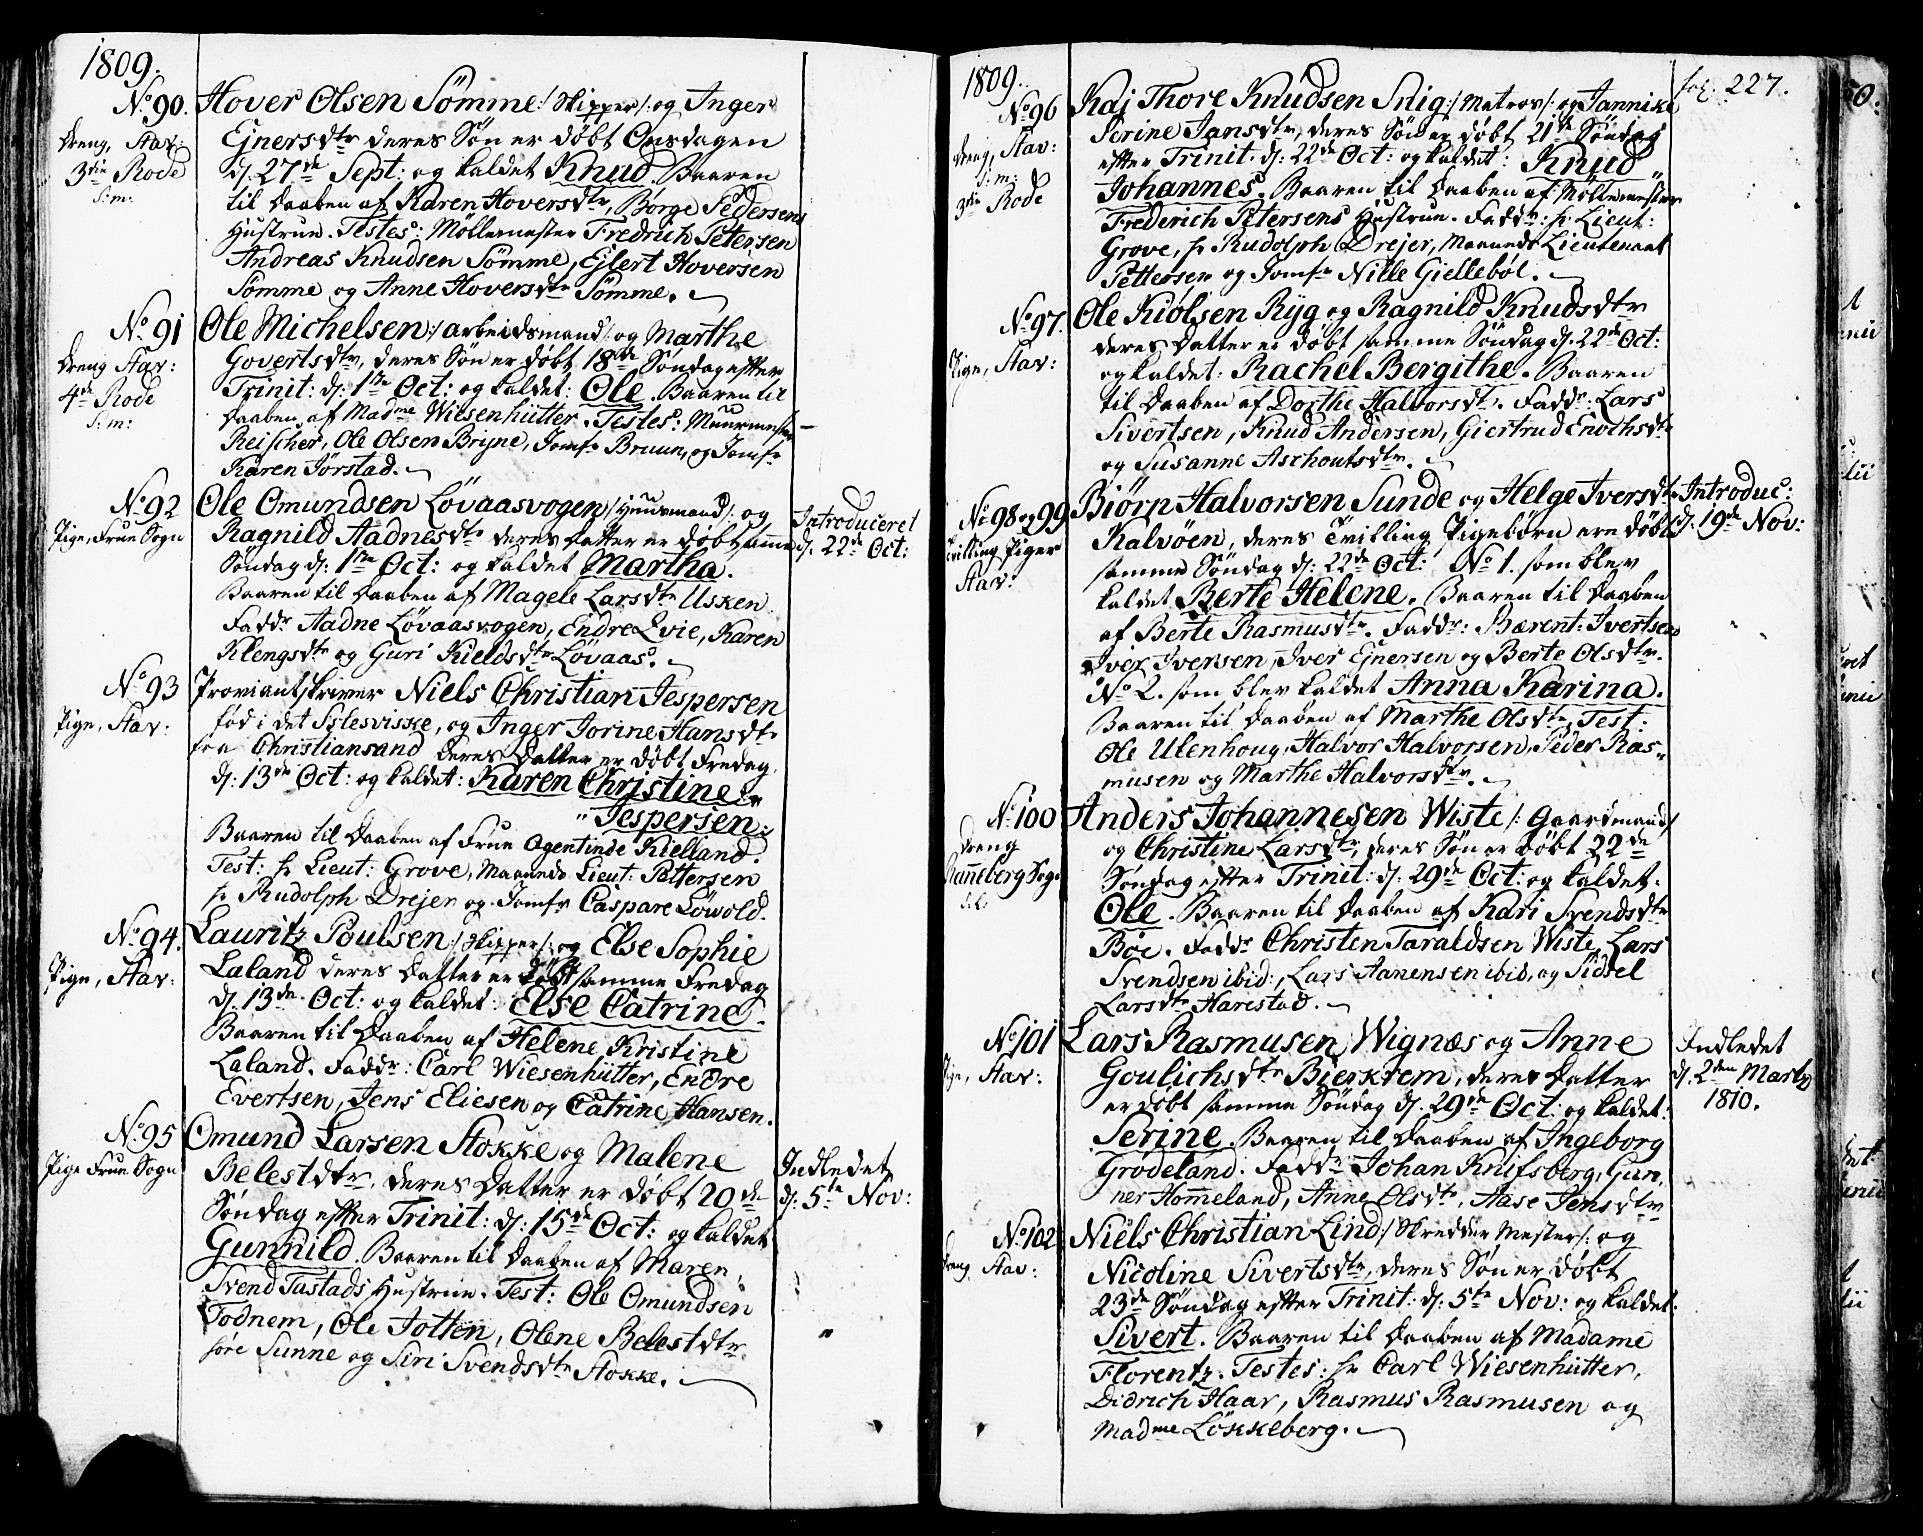 1809.
No. 90. Hover Olsen Sömme /: Skipper :/ og Inger
Dreng, Stav: Ejnersdtr deres Søn er døbt Onsdagen
3die Rode d: 27de Sept: og kaldet Knud. Baaren
S: m: til Daaben af Karen Hoversdtr, Börge Pedersens
Hustrue. Testes: Møllemester Fredrich Petersen
Andreas Knudsen Sömme, Ejlert Hoversen
Sömme og Anne Hoversdtr Sömme.
No. 91 Ole Michelsen /: arbeidsmand :/ og Marthe
Dreng Stav: Govertsdtr, deres Søn er døbt 18de Søndag efter
4de Rode Trinit: d: 1ste Oct: og kaldet: Ole. Baaren til
S: m: Daaben af Madme Wiesenhütter. Testes: Muurmester
Reischer, Ole Olsen Bryne, Jomfr Bruun, og Jomfr
Karen Jørstad.
No. 92 Ole Omundsen Løvaasvogen /: Huusmand :/ og
Pige, Frue Sogn Ragnild Aadnesdtr deres Datter er døbt samme
Søndag d: 1ste Oct: og kaldet Martha.
Baaren til Daaben af Magele Larsdtr Usken.
Faddr Aadne Løvaasvogen, Endre Qvie, Karen
Klengsdtr og Guri Kieldsdtr Løvaas.
Introduceret
d: 22de Oct:
No. 93 Proviantskriver Niels Christian Jespersen
Pige, Stav: fød i det Slesvisske, og Inger Jorine Hansdtr
fra Christiansand deres Datter er døbt Fredag
d: 13de Oct: og kaldet: Karen Christine
Jespersen:
Baaren til Daaben af Frue Agentinde Kielland.
Test: hr Lieut: Grove, Maaneds Lieut: Pettersen
hr Rudolph Drejer og Jomfr Caspare Løwold.
No. 94. Lauritz Poulsen /: Skipper :/ og Else Sophie
Pige, Stav: Laland deres Datter er døbt samme Fredag
d: 13de Oct: og kaldet: Else Catrine.
Baaren til Daaben af Helene Kristine
Laland. Faddr: Carl Wiesenhütter, Endre
Evertsen, Jens Eliesen og Catrine Hansen.
No. 95 Omund Larsen Stokke og Malene
Pige Frue Sogn Belestdtr, deres Datter er døbt 20de
Søndag efter Trinit: d: 15de Oct: og kaldet
Gunnild. Baaren til Daaben af Maren
Svend Tastads Hustrue. Test: Ole Omundsen
Todnem, Ole Jotten, Olene Belestdtr
søre Sunne og Siri Svendsdtr Stokke.
Indledet
d: 5te Nov:
1809. fol. 227.
No. 96 Kaj Thore Knudsen Snig /: Matros :/ og Jannike
Dreng, Stav: Serine Jansdtr, deres Søn er døbt 21de Søndag
S: m: efter Trinit. d: 22de Oct: og kaldet: Knud
3die Rode Johannes. Baaren til Daaben af Møllemester
Frederich Petersens Hustrue. Faddr: hr Lieut:
Grove, hr Rudolph Drejer, Maaneds Lieutenant
Pettersen og Jomfr Nille Giellebøl.
No. 97. Ole Kiölsen Ryg og Ragnild Knudsdtr
Pige, Stav: deres Datter er døbt samme Søndag d: 22de Oct:
og kaldet: Rachel Bergithe. Baaren
til Daaben af Dorthe Halvorsdtr. Faddr: Lars
Sivertsen, Knud Andersen, Giertrud Enochsdtr
og Susanne Aschoutsdtr.
No. 98 og 99 Biörn Halvorsen Sunde og Helge Iversdtr
Tvilling Piger Kalvöen, deres Tvilling Pigebørn ere døbt
Stav: samme Søndag d: 22de Oct: No 1. som blev
kaldet Berte Helene. Baaren til Daaben
af Berte Rasmusdtr. Faddr: Bærent Ivertsen
Iver Iversen, Iver Ejnersen og Berte Olsdtr.
No 2. som blev kaldet Anna Karina.
Baaren til Daaben af Marthe Olsdtr, Test:
Ole Ulenhoug, Halvor Halvorsen, Peder Ras-
musen og Marthe Halvorsdtr.
Introduc:
d: 19de Nov:
No. 100 Anders Johannesen Wiste /: Gaardmand :/
Dreng og Christine Larsdtr, deres Søn er døbt 22de
Ranneberg Sogn Søndag efter Trinit: d: 29de Oct: og kaldet:
Ole. Baaren til Daaben af Kari Svendsdtr
Bøe. Faddr Christen Taraldsen Wiste, Lars
Svendsen ibid:, Lars Aanensen ibid, og Sidsel
Larsdtr Harestad.
No. 101 Lars Rasmusen Wignæs og Anne
Pige, Stav: Goulichsdtr Bierkrem, deres Datter
er døbt samme Søndag d: 29de Oct: og kaldet:
Serine. Baaren til Daaben af Ingeborg
Grodeland. Faddr Johan Knifsberg, Gun-
ner Homeland, Anne Olsdtr, Aase Jensdtr
Indledet
d: 2den Martz
1810.
No. 102 Niels Christian Lind /: Skredder Mester :/ og
Dreng Stav: Nicoline Sivertsdtr, deres Søn er døbt
23de Søndag efter Trinit: d: 5te Nov: og kaldet:
Sivert. Baaren til Daaben af Madame
Florentz. Testes: hr Carl Wiesenhütter,
Didrich Haar, Rasmus Rasmusen og
Madme Løkkeberg.